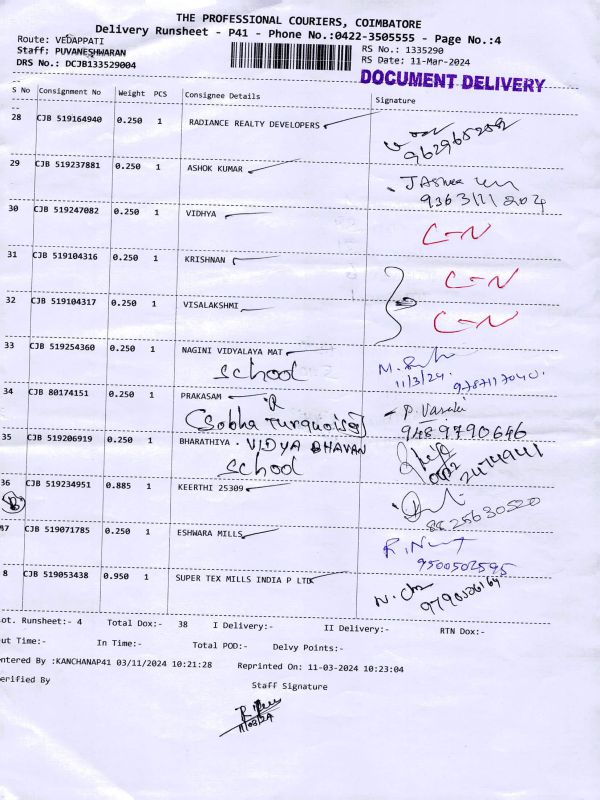 THE PROFESSIONAL COURIERS, COIMBATORE
Delivery Runsheet - P41 - Phone No.:0422-3505555 - Page No.:4
Route: VEDAPPATI
RS No.: 1335290
Staff: PUVANESHWARAN
RS Date: 11-Mar-2024
DRS No.: DCJB133529004
DOCUMENT DELIVERY
S No Consignment No Weight PCS Consignee Details Signature
28 CJB 519164940 0.250 1 RADIANCE REALTY DEVELOPERS
962965252
29 CJB 519237881 0.250 1 ASHOK KUMAR
9363111202
30 CJB 519247082 0.250 1 VIDHYA
C-N
31 CJB 519104316 0.250 1 KRISHNAN
C-N
32 CJB 519104317 0.250 1 VISALAKSHMI
C-N
33 CJB 519254360 0.250 1 NAGINI VIDYALAYA MAT
School
11/3/24. 9787117040.
34 CJB 80174151 0.250 1 PRAKASAM R
P. Vasuki
(Sobha Turquoise)
9489790646
35 CJB 519206919 0.250 1 BHARATHIYA . VIDYA BHAVAN
School
0422 2474941
36 CJB 519234951 0.885 1 KEERTHI 25309
8825630520
37 CJB 519071785 0.250 1 ESHWARA MILLS
9500502595
8 CJB 519053438 0.950 1 SUPER TEX MILLS INDIA P LTD
9790526164
ot. Runsheet:- 4 Total Dox:- 38 I Delivery:- II Delivery:- RTN Dox:-
ut Time:- In Time:- Total POD:- Delvy Points:-
ntered By :KANCHANAP41 03/11/2024 10:21:28 Reprinted On: 11-03-2024 10:23:04
erified By
Staff Signature
11/03/24